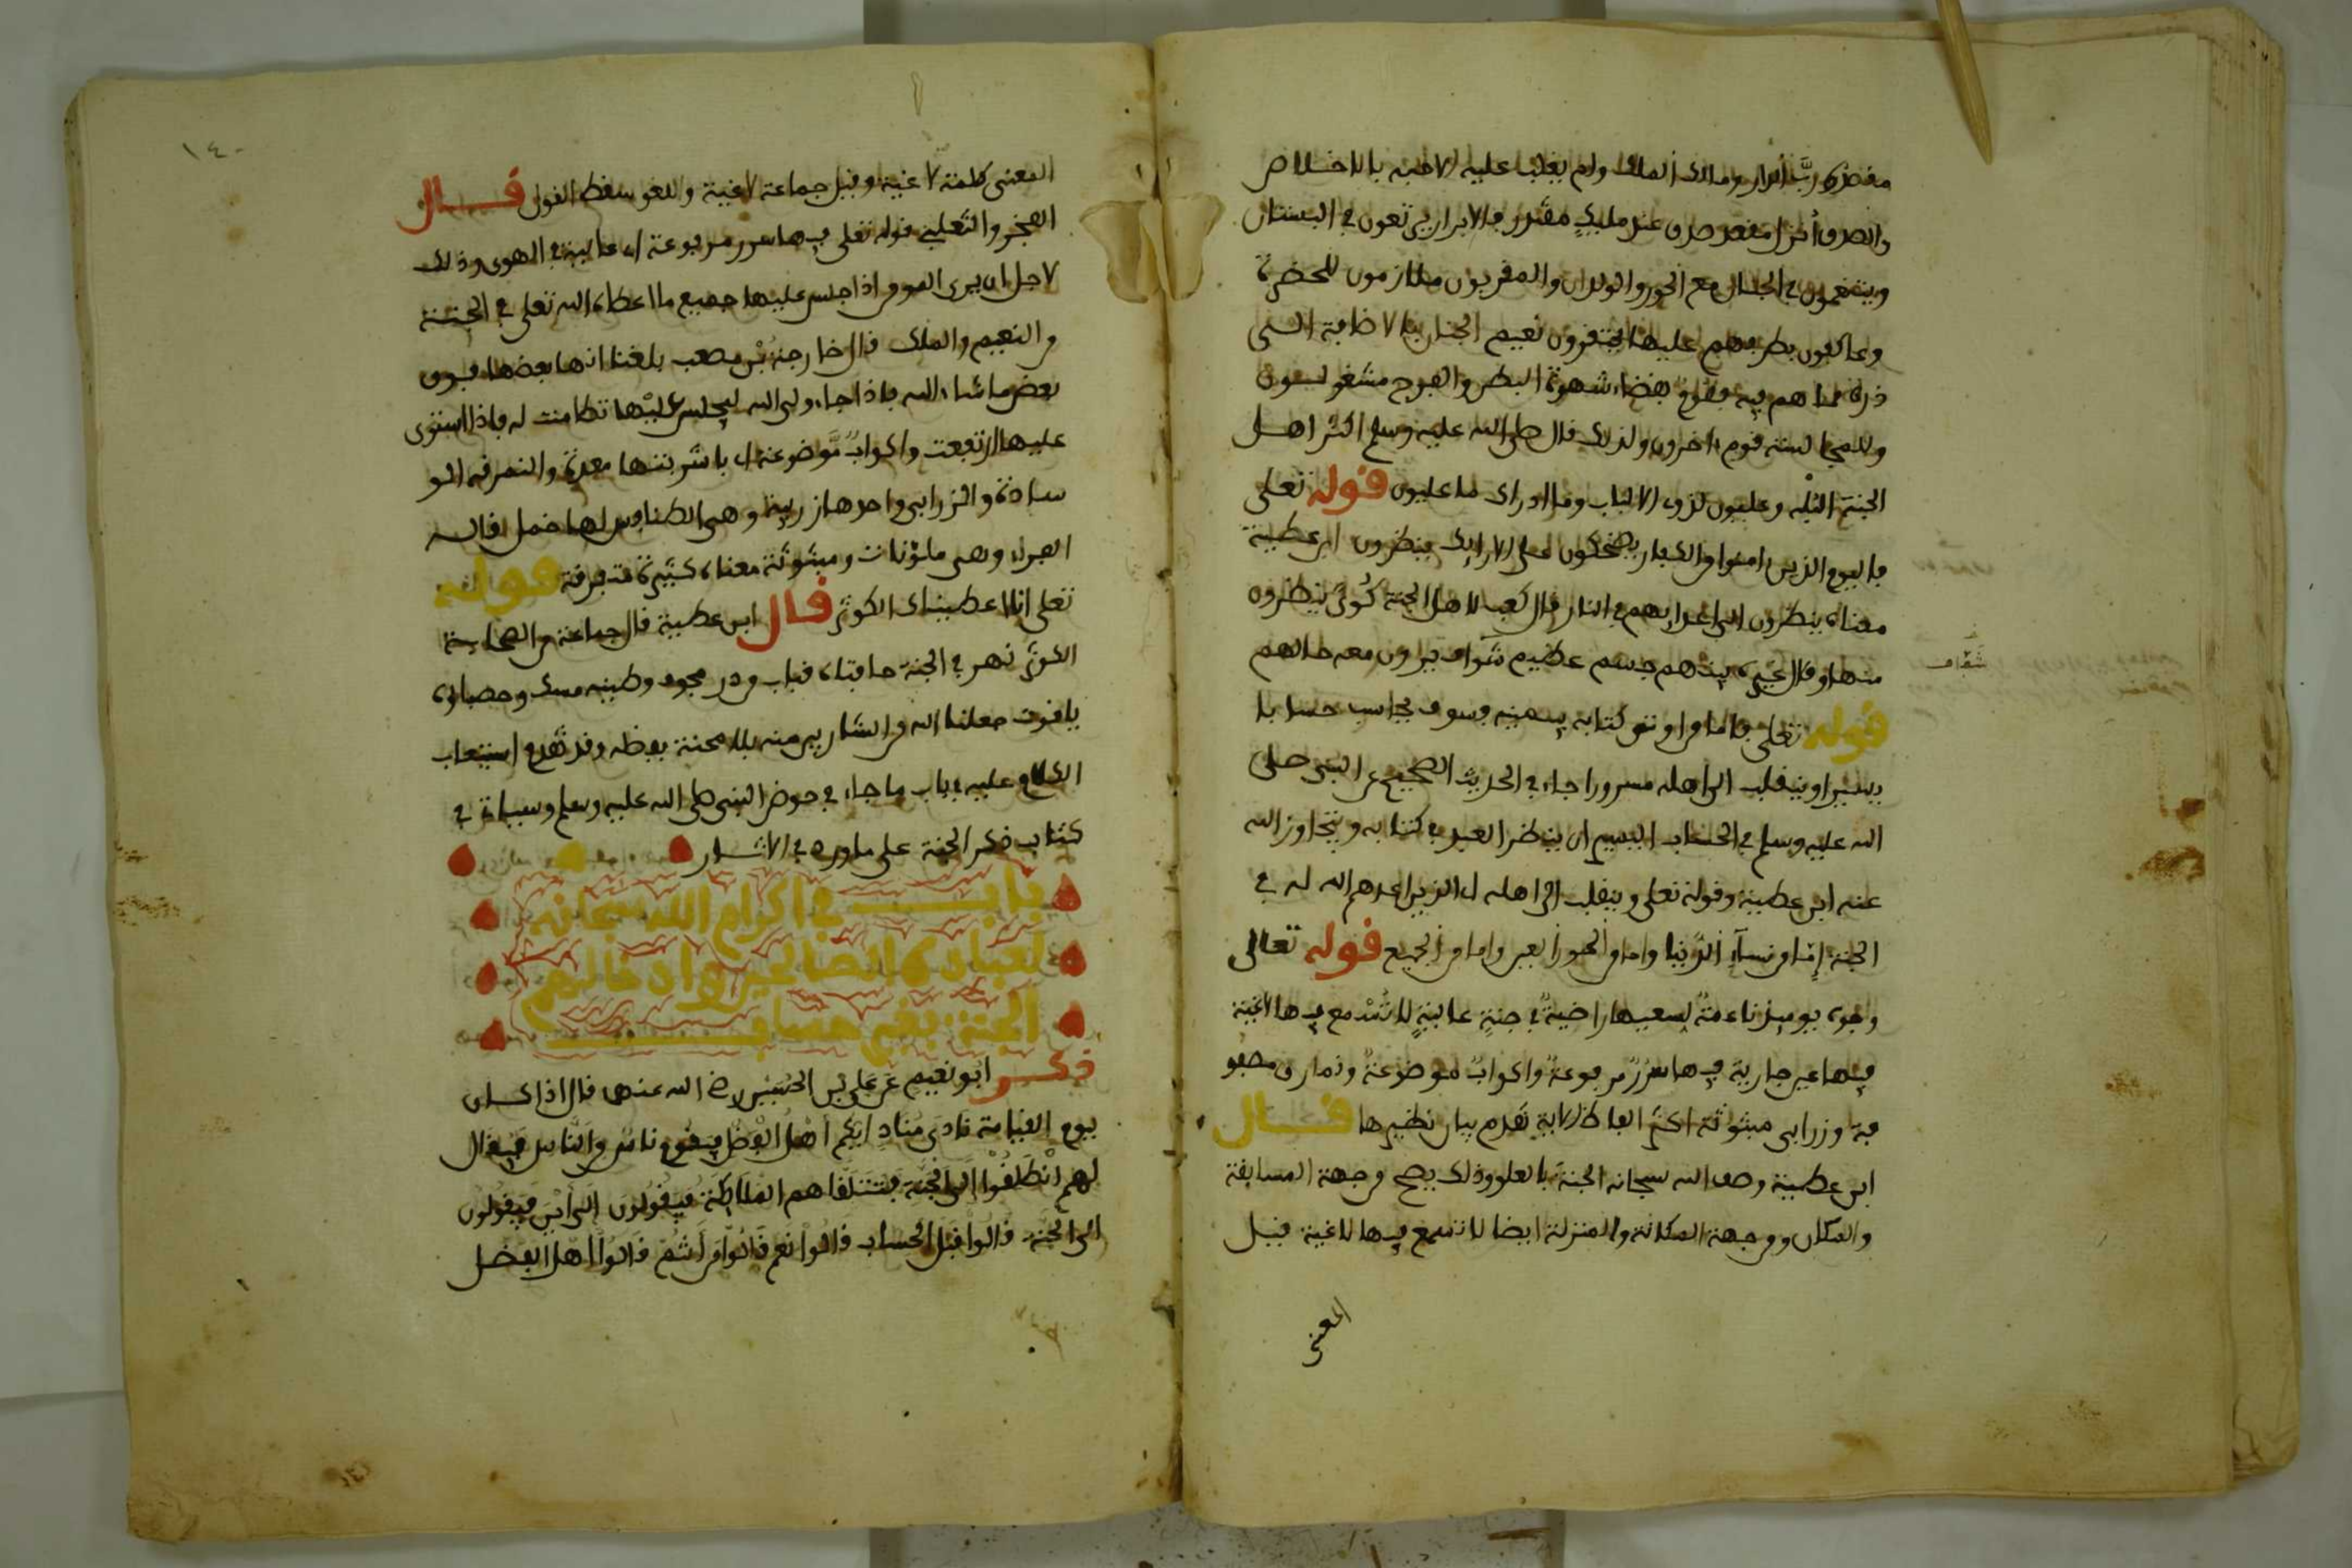 مقصده رب الدار ومالك الملك ولم يغلب عليه الا حبه بالاخلاص
والصدق أنزل مقعد صدق عند مليك مقتدر فالابرار يرتعون في البستان
ويتنعمون في الجنان مع الحور والولدان والمقربون ملازمون للحضرة
وعاكفون بطرفهم عليها يحتقرون نعيم الجنان بالاضافة الى
ذرة مما هم فيه فقوم بقضاء شهوة البطن والفرج مشغولون
وللمجالسة قوم اخرون ولذلك قال صلى الله عليه وسلم اكثر اهل
الجنة البله وعليون لذوى الالباب وما ادراك ما عليون قوله تعلى
فاليوم الذين امنوا من الكفار يضحكون على الارايك ينظرون ابن عطية
معناه ينظرون الى اعدايهم في النار قال كعب لاهل الجنة كُوىً ينظرون
منها وقال غيره بينهم جسم عظيم شفاف يرون معه حالهم
شفاف
قوله تعلى فاما من اوتى كتابه بيمينه فسوف يحاسب حسابا
يسيرا وينقلب الى اهله مسرورا جاء في الحديث الصحيح عن النبى صلى
الله عليه وسلم في الحساب اليسير ان ينظر العبد في كتابه ويتجاوز الله
عنه ابن عطية وقوله تعلى وينقلب الى اهله اى الذين اعدهم الله له في
الجنة إمّا من نسآء الدُّنيا واما من الحور العين واما من الجميع قوله تعالى
وجوه يوميذ ناعمة لسعيها راضيةٌ في جنةٍ عاليةٍ لا تُسمع فيها لاغية
فيها عين جارية فيها سُرُرٌ مرفوعةٌ واكوابٌ موضوعةٌ ونمارق مصفو
فة وزرابى مبثوثة اكثر الفاظ الاية تقدم بيان نظيرها قال
ابن عطية وصف الله سبحانه الجنة بالعلو وذلك يصح من جهة المسافة
والمكان ومن جهة المكانة والمنزلة ايضا لا تسمع فيها لاغية قيل
المعنى
١٤٠
المعنى كلمة لاغية وقيل جماعة لاغية واللغو سقط القول قال
الفخر والثعلبى قوله تعلى فيها سرر مرفوعة اى عالية في الهوى وذلك
لاجل ان يرى المومن اذا جلس عليها جميع ما اعطاه الله تعلى في الجنة
من النعيم والملك قال خارجة بْن مصعب بلغنا انها بعضها فوق
بعض ما شاء الله فاذا جاء ولى الله ليجلس عليْها تطامنت له فاذا استوى
عليها ارتفعت واكوابٌ مَّوضوعة اى باشربتها معدة والنمرقة الو
سادة والزرابى واحدها زربية وهى الطنافس لها خمل قاله
الفراء وهى ملونات ومبثوثة معناه كثيرة متفرقة قوله
تعلى انا اعطيناك الكوثر قال ابن عطية قال جماعة من الصحابة
الكوثر نهر في الجنة حافتاه قباب من در مجوف وطينه مسك وحصباؤه
ياقوت جعلنا الله من الشاربين منه بلا محنة بفضله وقد تقدم استيعاب
الكلام عليه في باب ما جاء في حوض النبى صلى الله عليه وسلم وسياة في
كتاب ذكر الجنة على ما ورد في الاثار
باب في اكرام الله سبحانه
لعباده الصالحين وادخالهم
الجنة بغير حساب
ذكر ابو نعيم عَن عَلى بْن الحُسَيْن رضى الله عنهم قال اذا كان
يوم القيامة نادى مُنَادٍ ايُّكم أَهْلُ الْفَضْل فيقوم ناسٌ من النَّاس فيقال
لهم انْطَلِقُوْا الَى الْجَنَّة فتتلقاهم الملايكة فيقولون الى ايْن فيقولون
الى الجنة قالوا قبل الحساب قالوا نعم قالُوا مَن أَنتُم قالوا اهل الفضل